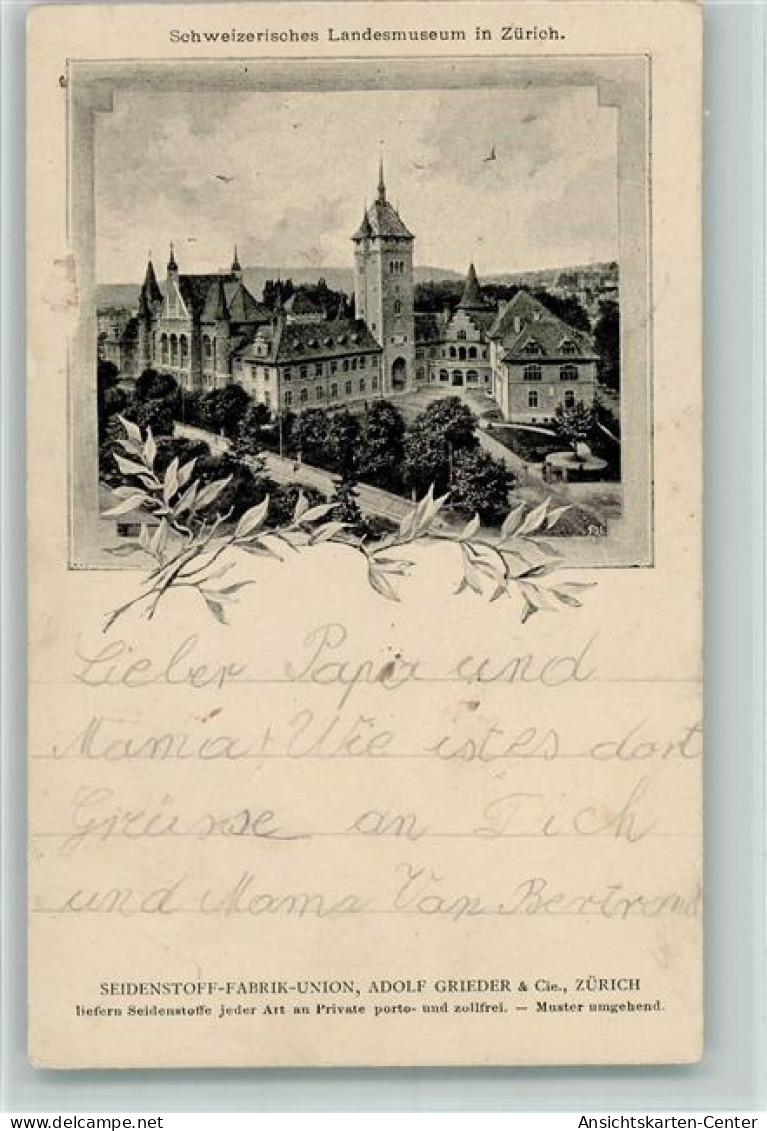 Schweizerisches Landesmuseum in Zürich.
Lieber Papa und
Mama! Wie ist es dort
Grüsse an Dich
und Mama Van Bertrand
SEIDENSTOFF-FABRIK-UNION, ADOLF GRIEDER & Cie., ZÜRICH
liefern Seidenstoffe jeder Art an Private porto- und zollfrei. — Muster umgehend.
Ansichtskarten-Center